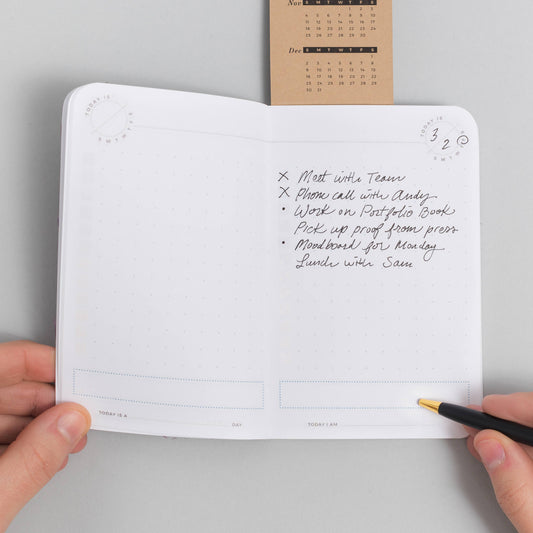 Nov S M T W T F S
1 2 3
4 5 6 7 8 9 10
11 12 13 14 15 16 17
18 19 20 21 22 23 24
25 26 27 28 29 30
Dec S M T W T F S
1
2 3 4 5 6 7 8
9 10 11 12 13 14 15
16 17 18 19 20 21 22
23 24 25 26 27 28 29
30 31
TODAY IS
S M T W T F S
TODAY IS A
DAY
TODAY IS
3
2
X Meet with Team
X Phone call with Andy
• Work on Portfolio Book
Pick up proof from press
• Moodboard for Monday
Lunch with Sam
TODAY I AM